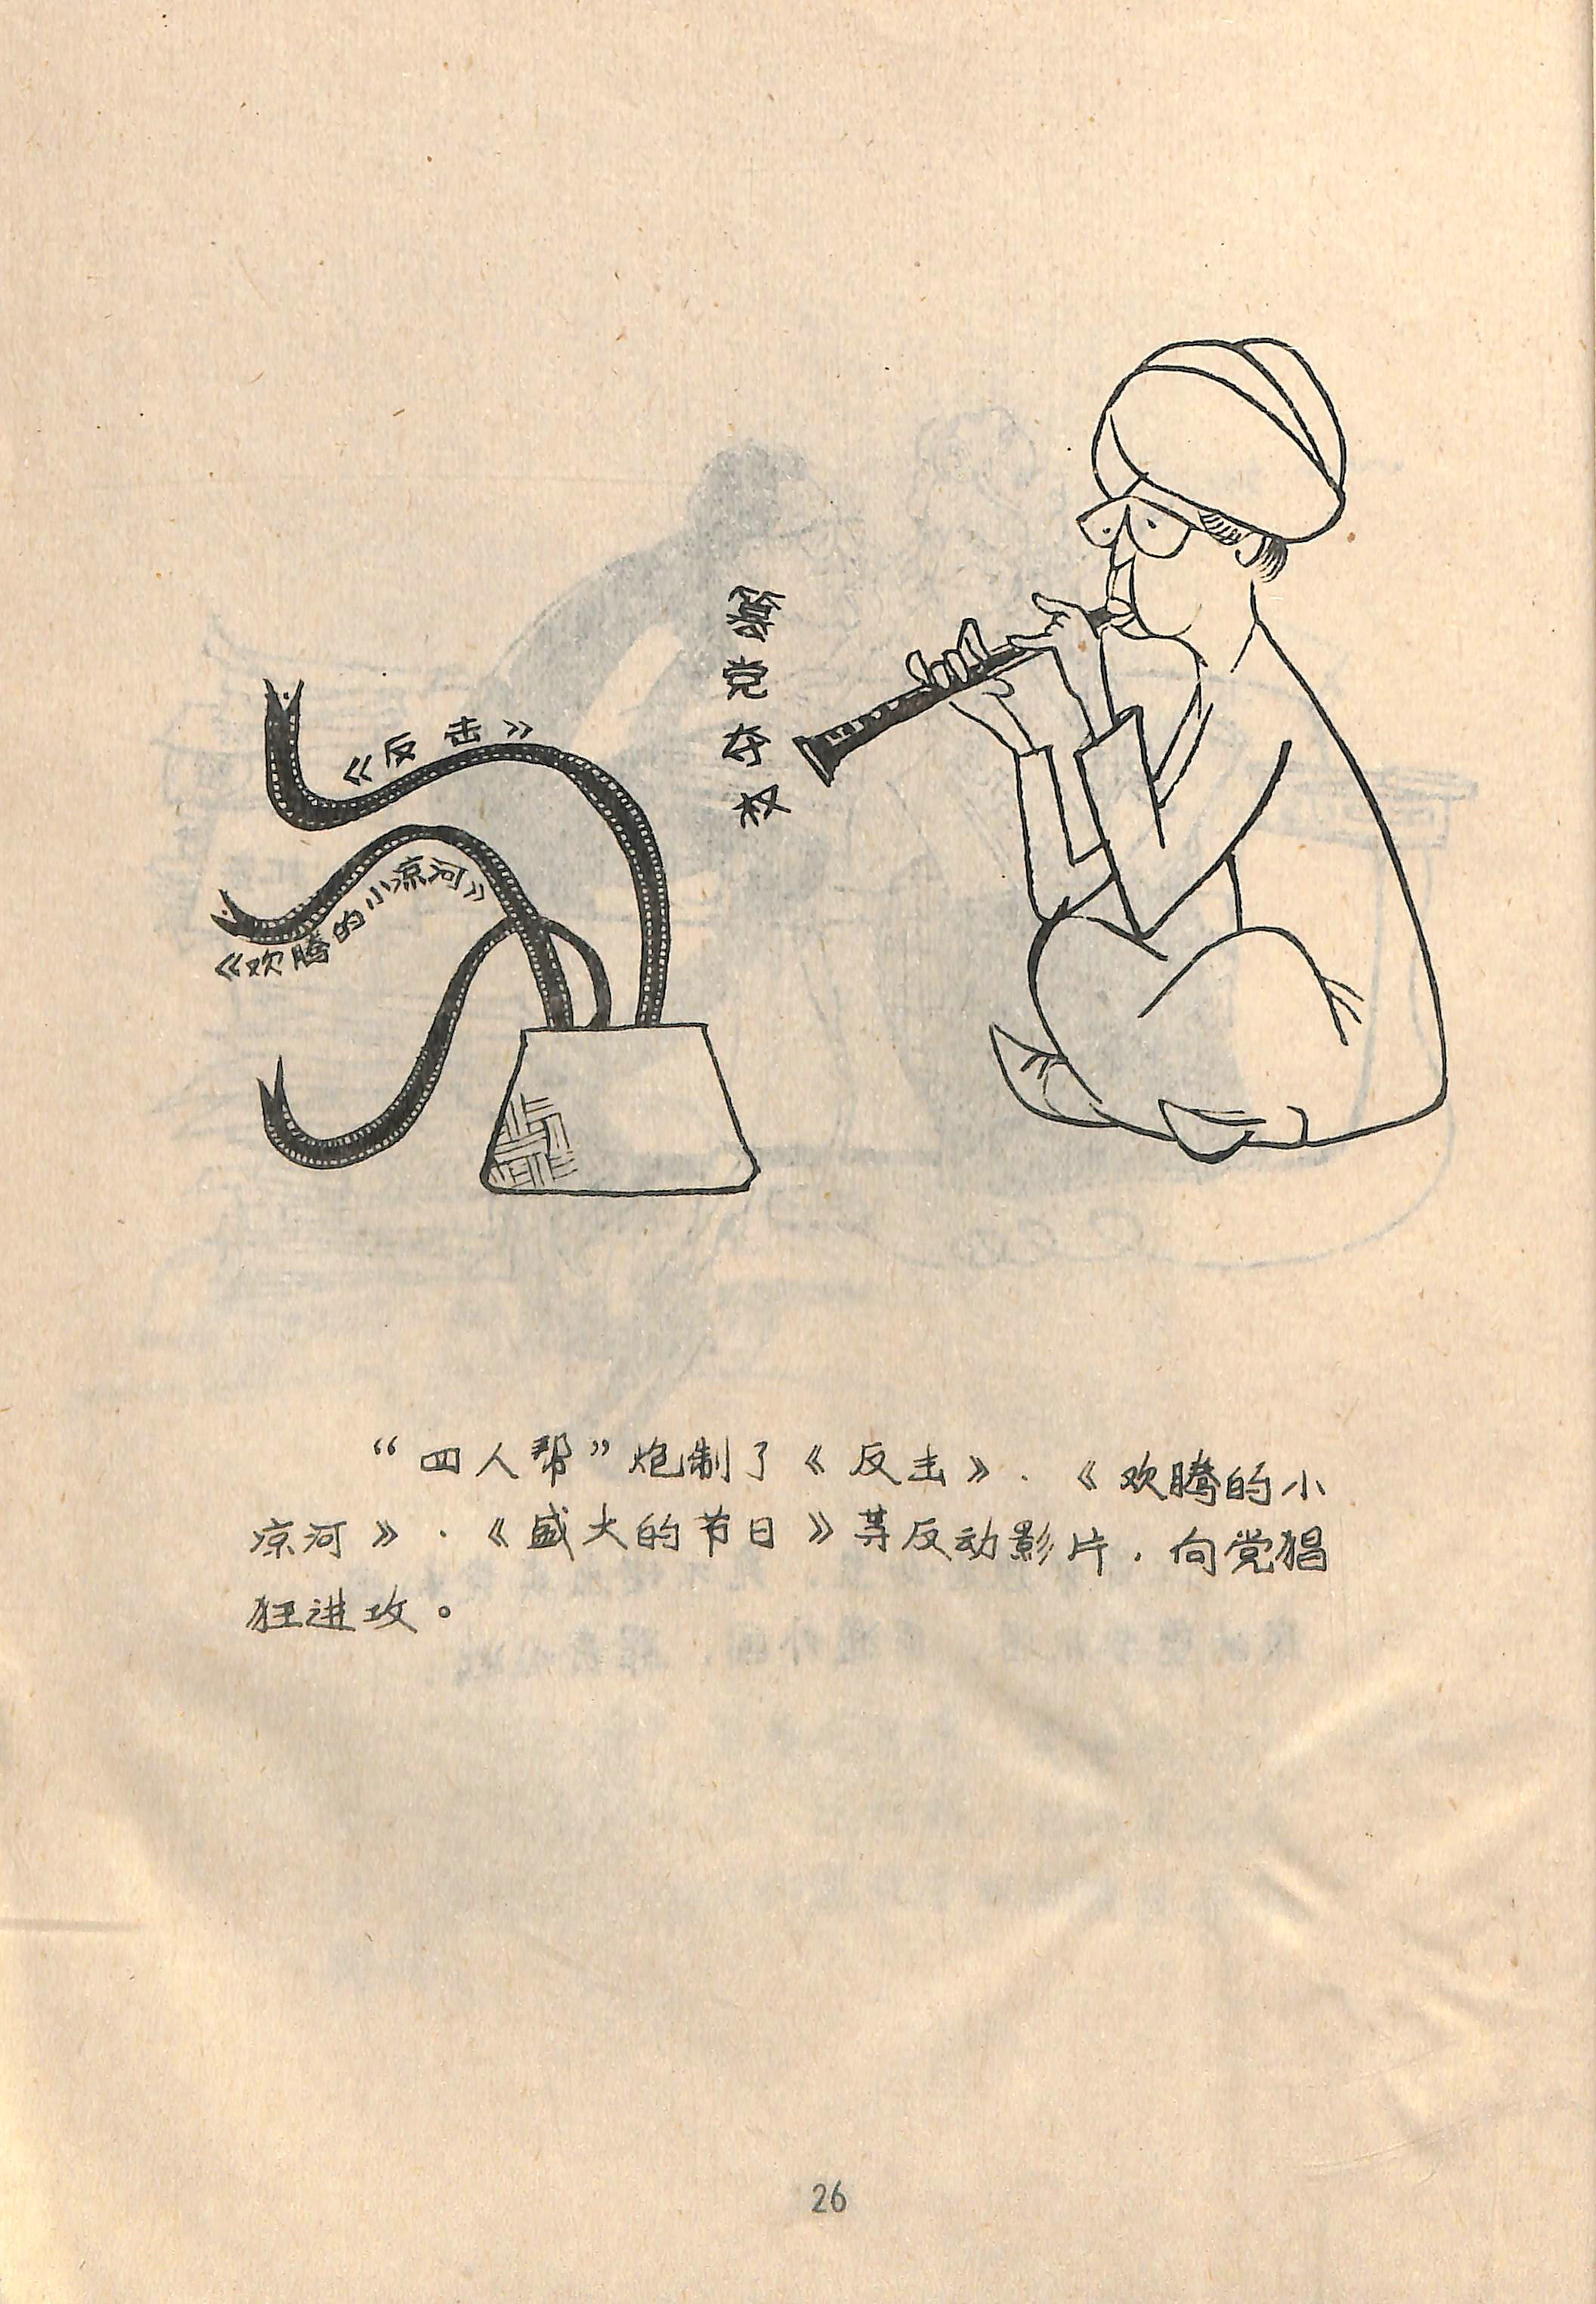 篡党夺权
《反击》
《欢腾的小凉河》
“四人帮”炮制了《反击》、《欢腾的小
凉河》、《盛大的节日》等反动影片，向党猖
狂进攻。
26